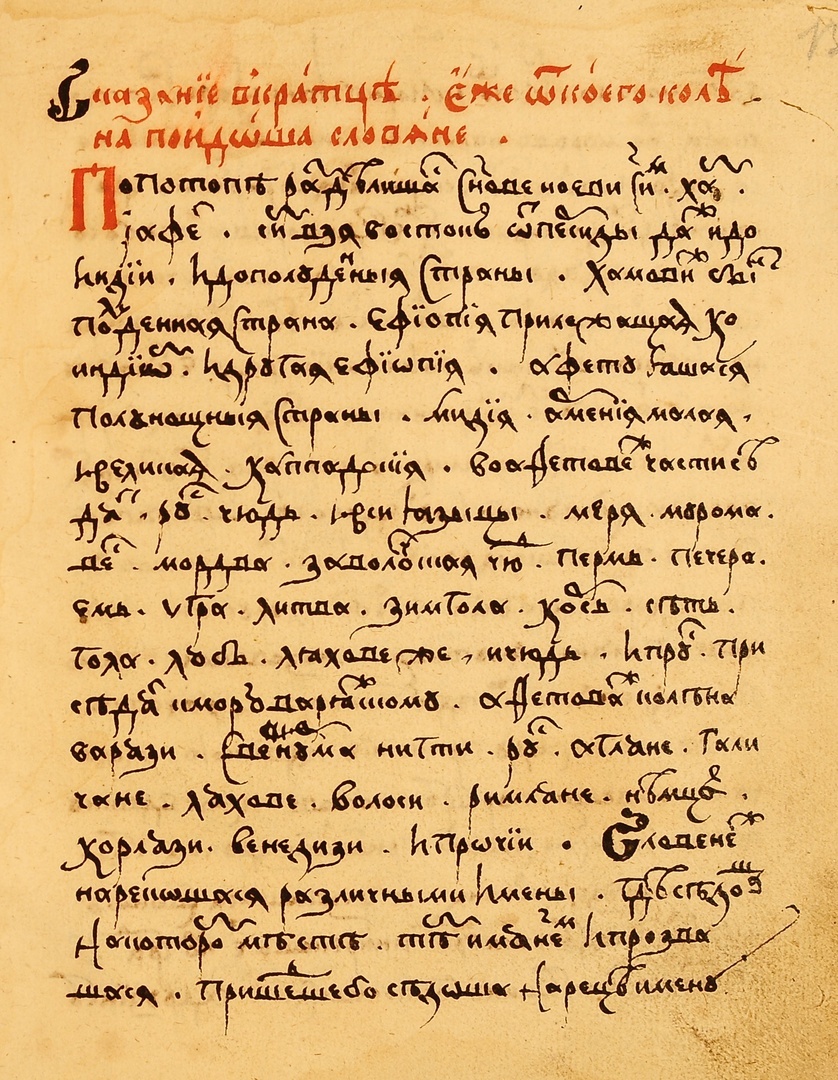 Сказанїе вкра́тцѣ . Е́же ѿко́его колѣ
на поидо́ша словѧ́не .
Попотопѣ раздѣлишасѧ Сн҃ове ноеви Си́м . ха́м .
їафе́т . си́м взѧ востокъ ѿперсиды да́же и до
Индїи . И дополуде́нныѧ Страны . Хамови же Сѧ
По́луденнаѧ Страна . Ефїопїѧ Прилежащаѧ ко
индїѡм . И другаѧ Ефїѡпїѧ . афету ꙗшасѧ
Полунощныѧ Страны . мидїѧ . а́рменїѧ малаѧ ,
И великаѧ . каппадокїѧ . во афетове же части сѣ
дѧт . ру́с . чюдь . И вси ꙗзыцы . мерѧ . мурома .
ве́с . мордва . заволо́цкаѧ чю́дь . пермь . печера .
емь . угра . литва . зимгола . ко́рсь . сѣть .
гола . любь . лѧхове же , и чюдь , И пру́с . При
сѣдѧ́т к морю варѧ́жскому . афетова же колѣна
варѧзи . Свеѧне нурмане и гти . ру́с . аглѧне . Гали
чане . лѧхове . волоси . римлѧне . нѣмцы .
корлѧзи . венедизи . И прочїи . Словене же
нарекошасѧ различными Имены . гдѣ сѣдоша
на которо́м мѣстѣ . тѣ́м имѧне́м И прозва
шасѧ . Прише́дше бо сѣдоша нарецѣ имену